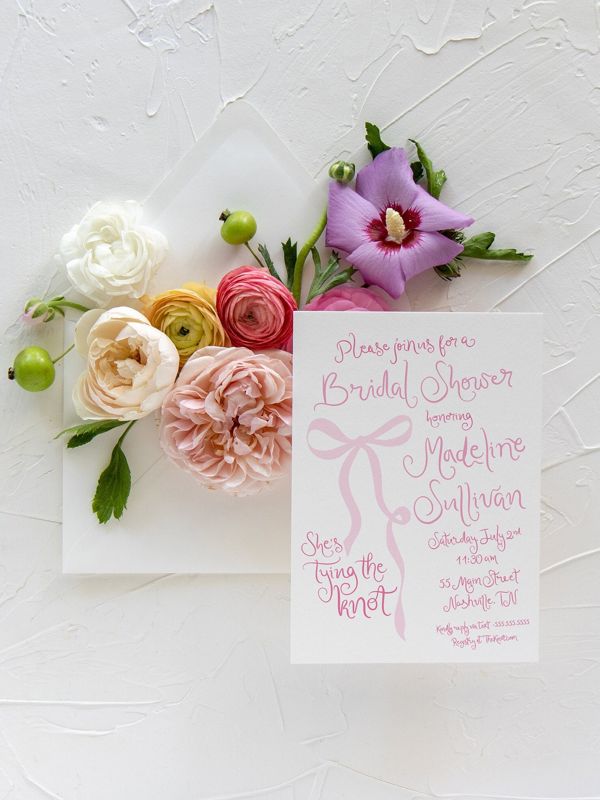 Please join us for a
Bridal Shower
honoring
Madeline
Sullivan
Saturday July 2nd
11:30 am
55 Main Street
Nashville, TN
Kindly reply via text · 555.555.5555
Registry at TheKnot.com
She's
Tying the
knot